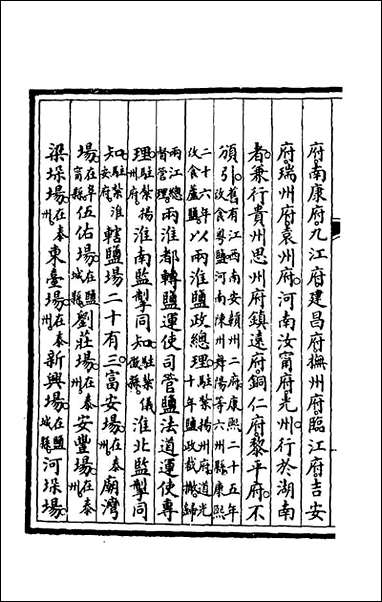 府南康府九江府建昌府撫州府臨江府吉安
府瑞州府袁州府河南汝甯府光州行於湖南
者兼行貴州思州府鎮遠府銅仁府黎平府不
頒引舊有江西南安贛州二府康熙二十五年改食粵鹽河南陳州舞陽等六州縣康熙
二十六年改食蘆鹽以兩淮鹽政總理駐紮揚州府道光十年鹽政裁撤歸
兩江總督管理兩淮都轉鹽運使司管鹽法道運使專
理駐紮揚州府淮南監掣同知駐紮儀徵縣淮北監掣同
知駐紮淮安府轄鹽場二十有三富安場在泰州廟灣
場在阜甯縣伍佑場在鹽城縣劉莊場安豐場在泰州
梁垛場在泰州東臺場在泰州新興場在鹽城縣河垛場